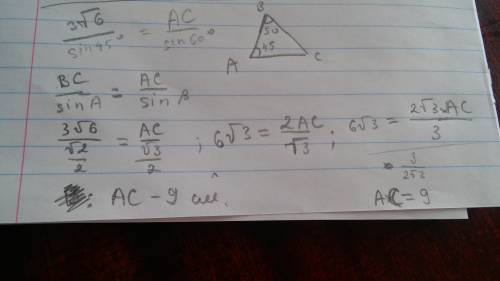 3√6 / sin 45° = AC / sin 60°
B
50
45
A C
BC / sin A = AC / sin B
3√6 / (√2/2) = AC / (√3/2) ; 6√3 = 2AC / √3 ; 6√3 = 2√3 · AC / 3
3 / 2√3
: AC - 9 см. AC = 9